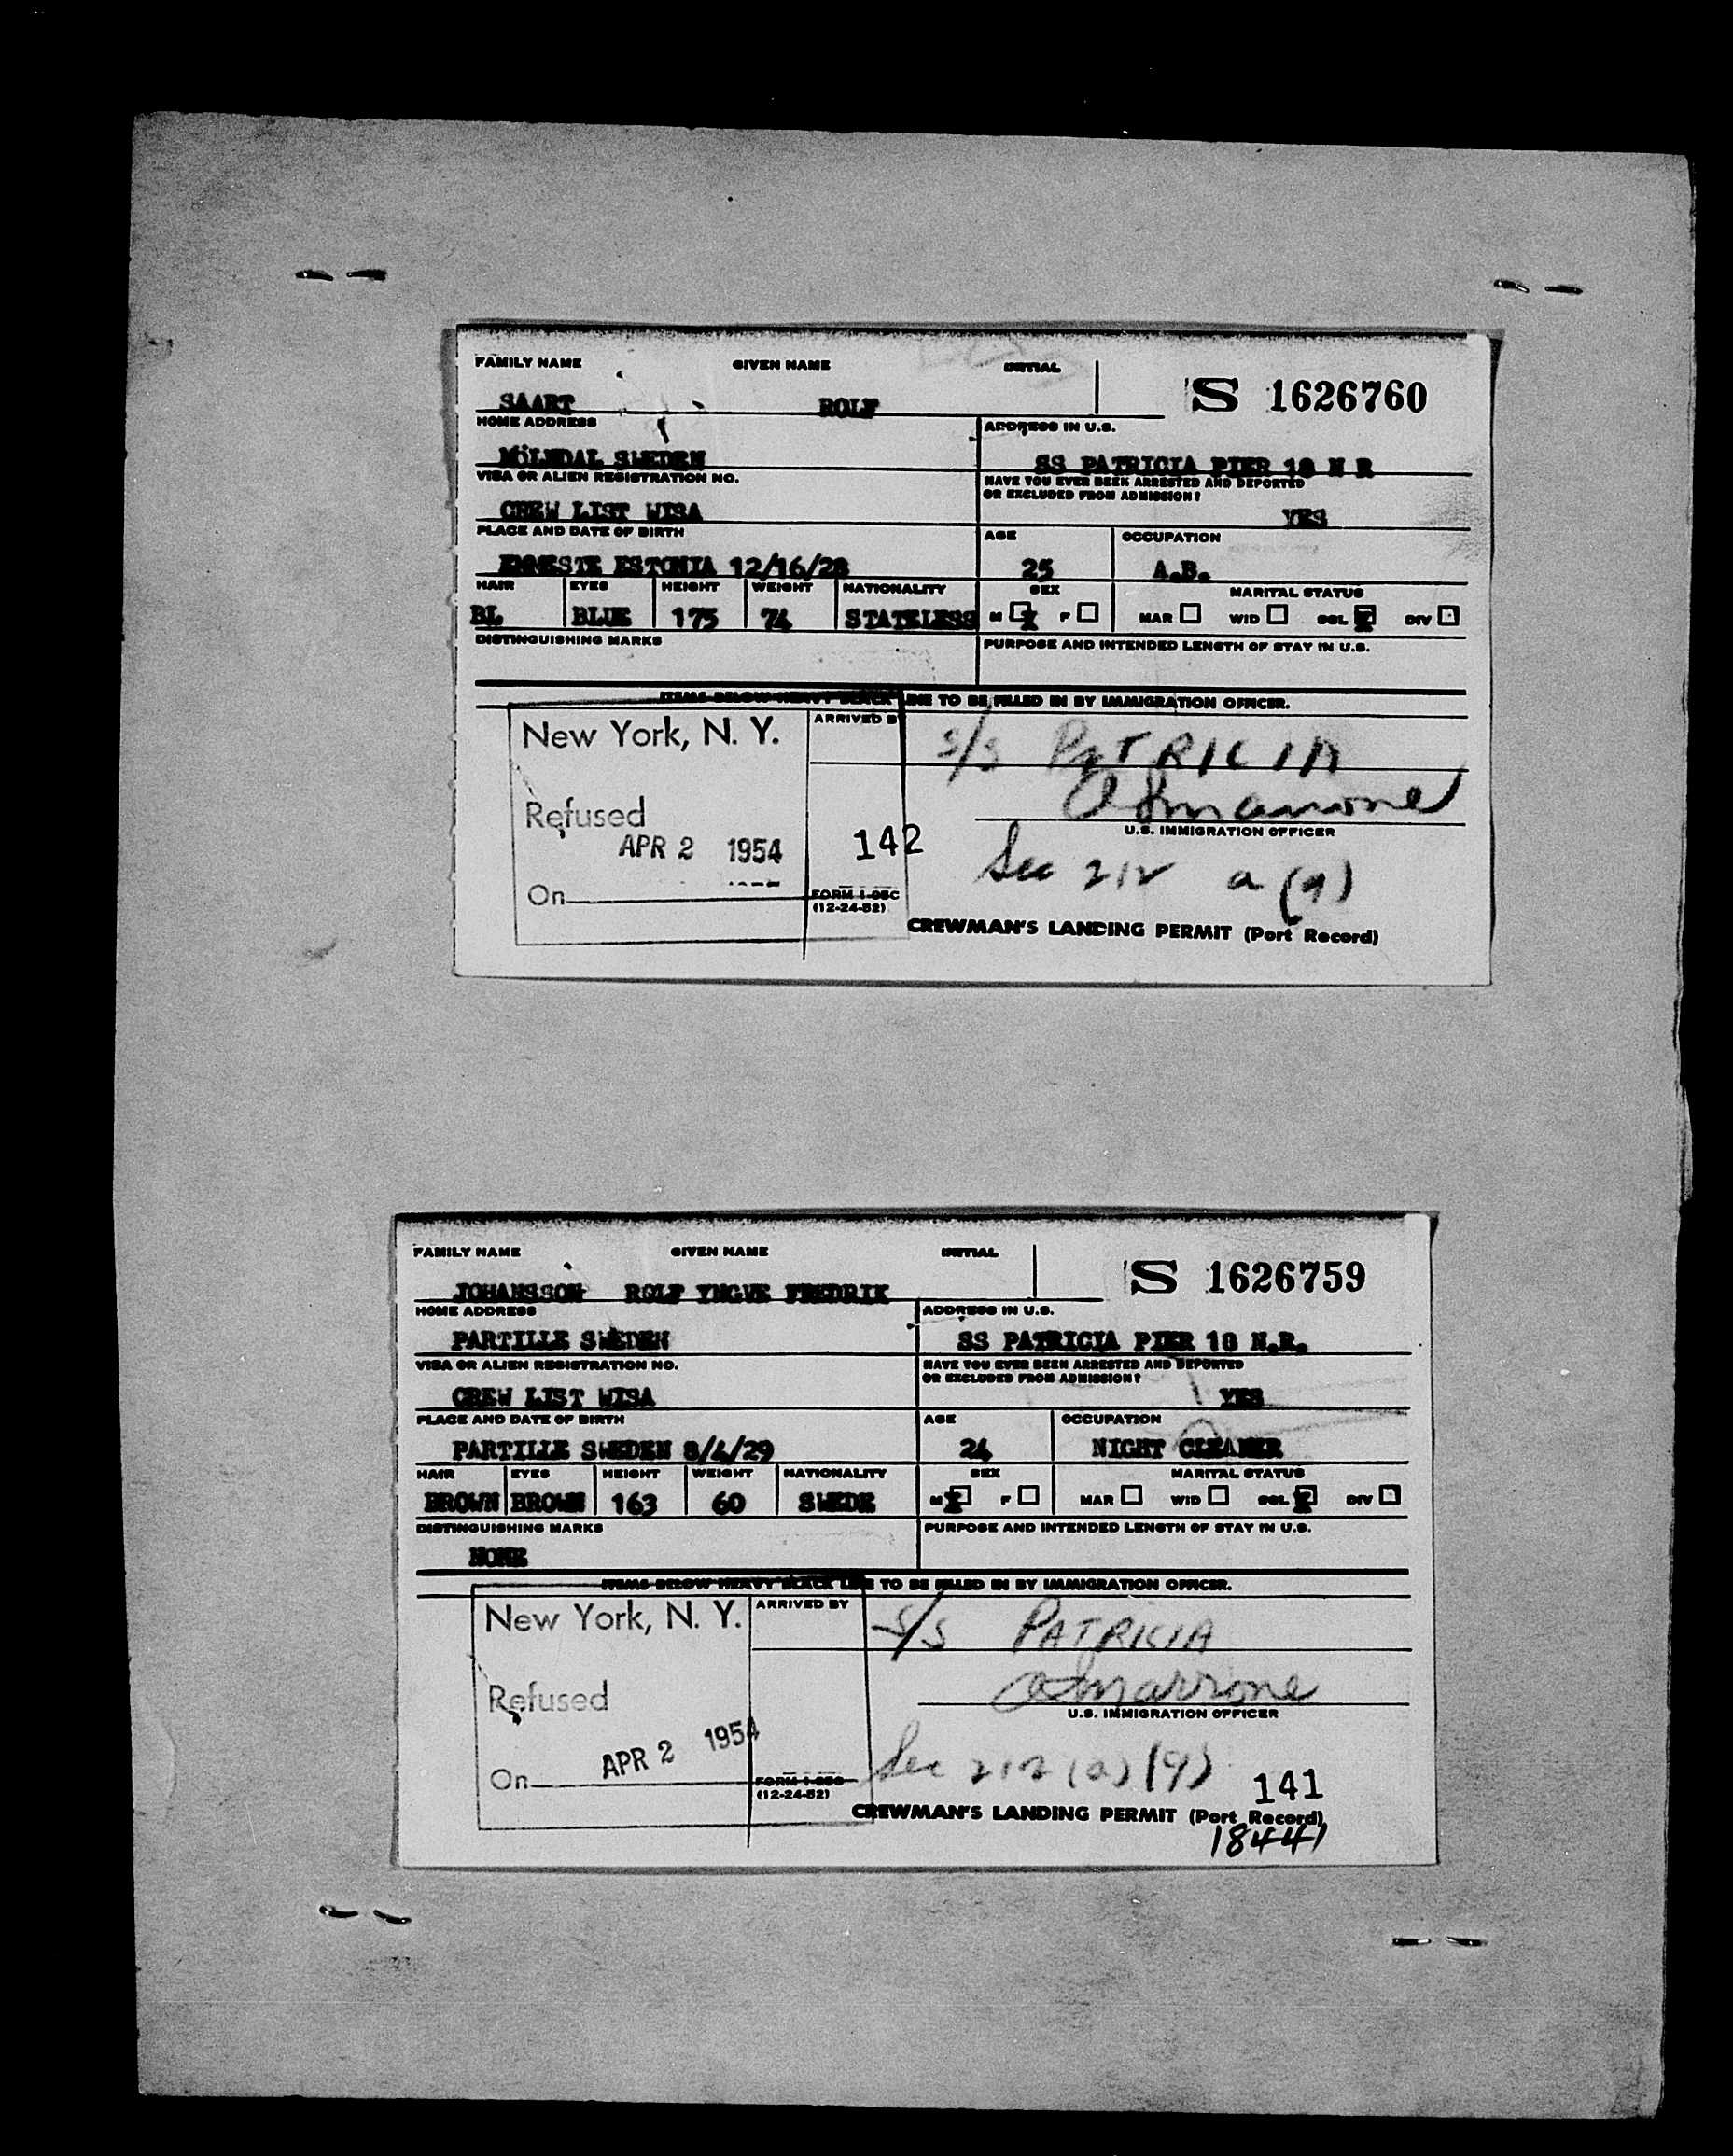 FAMILY NAME GIVEN NAME INITIAL
S 1626760
SAART ROLF
HOME ADDRESS ADDRESS IN U.S.
MÖLNDAL SWEDEN SS PATRICIA PIER 18 N R
VISA OR ALIEN REGISTRATION NO. HAVE YOU EVER BEEN ARRESTED AND DEPORTED
OR EXCLUDED FROM ADMISSION?
CREW LIST WISA YES
PLACE AND DATE OF BIRTH AGE OCCUPATION
ESTONIA 12/16/28 25 A.B.
HAIR EYES HEIGHT WEIGHT NATIONALITY SEX MARITAL STATUS
BL BLUE 175 74 STATELESS M X F MAR WID SGL X DIV
DISTINGUISHING MARKS PURPOSE AND INTENDED LENGTH OF STAY IN U.S.
ITEMS BELOW HEAVY BLACK LINE TO BE FILLED IN BY IMMIGRATION OFFICER.
New York, N. Y. ARRIVED BY S/S PATRICIA
Refused
U.S. IMMIGRATION OFFICER
APR 2 1954 142 Sec 212 a (9)
On
FORM I-95C
(12-24-52)
CREWMAN'S LANDING PERMIT (Port Record)
FAMILY NAME GIVEN NAME INITIAL
S 1626759
JOHANSSON ROLF YNGVE FREDRIK
HOME ADDRESS ADDRESS IN U.S.
PARTILLE SWEDEN SS PATRICIA PIER 18 N.R.
VISA OR ALIEN REGISTRATION NO. HAVE YOU EVER BEEN ARRESTED AND DEPORTED
OR EXCLUDED FROM ADMISSION?
CREW LIST WISA YES
PLACE AND DATE OF BIRTH AGE OCCUPATION
PARTILLE SWEDEN 8/4/29 24 NIGHT CLEANER
HAIR EYES HEIGHT WEIGHT NATIONALITY SEX MARITAL STATUS
BROWN BROWN 163 60 SWEDE M X F MAR WID SGL X DIV
DISTINGUISHING MARKS PURPOSE AND INTENDED LENGTH OF STAY IN U.S.
NONE
ITEMS BELOW HEAVY BLACK LINE TO BE FILLED IN BY IMMIGRATION OFFICER.
New York, N. Y. ARRIVED BY S/S PATRICIA
Refused
U.S. IMMIGRATION OFFICER
APR 2 1954
On Sec 212 (a) (9) 141
FORM I-95C
(12-24-52)
CREWMAN'S LANDING PERMIT (Port Record)
18441